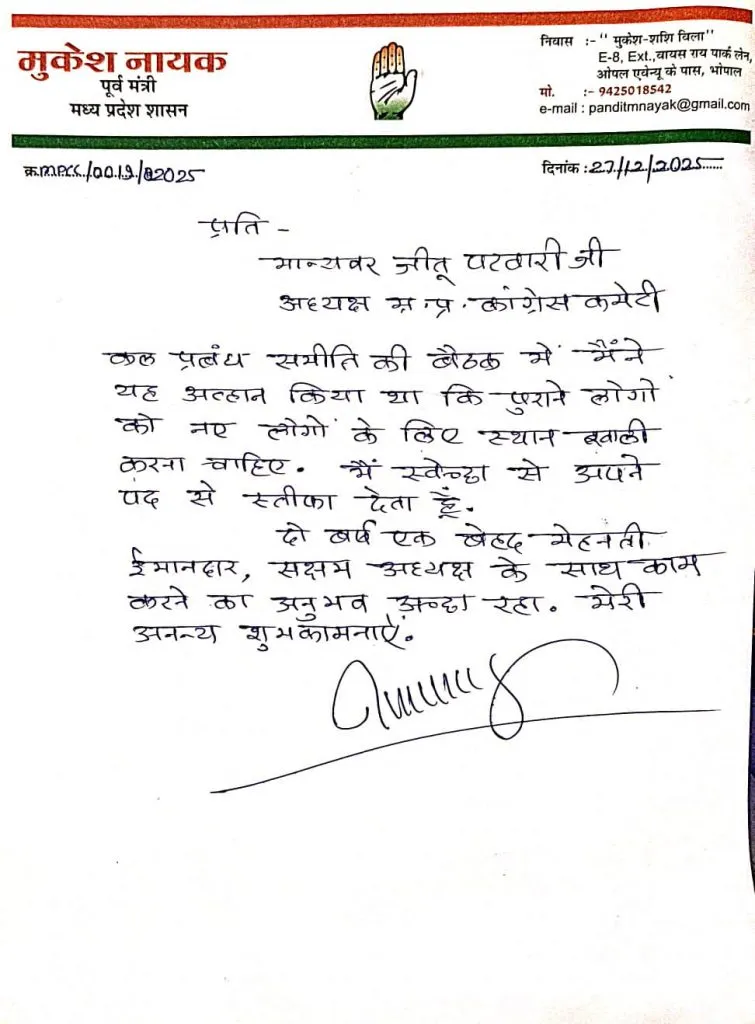 मुकेश नायक
पूर्व मंत्री
मध्य प्रदेश शासन
निवास :- " मुकेश-शशि विला"
E-8, Ext.,वायस राय पार्क लेन,
ओपल एवेन्यू के पास, भोपाल
मो. :- 9425018542
e-mail : panditmnayak@gmail.com
क्र./0019/2025
दिनांक : 27/12/2025
प्रति -
मान्यवर जीतू पटवारी जी
अध्यक्ष म.प्र. कांग्रेस कमेटी
कल प्रबंध समीति की बैठक में मैंने
यह किया था कि पुराने लोगों
को नए लोगों के लिए स्थान खाली
करना चाहिए. मैं स्वेच्छा से अपने
पद से स्तीफा देता हूँ.
दो वर्ष एक बेहद मेहनती
ईमानदार, सक्षम अध्यक्ष के साथ काम
करने का अनुभव अच्छा रहा. मेरी
अनन्य शुभकामनाऐं.